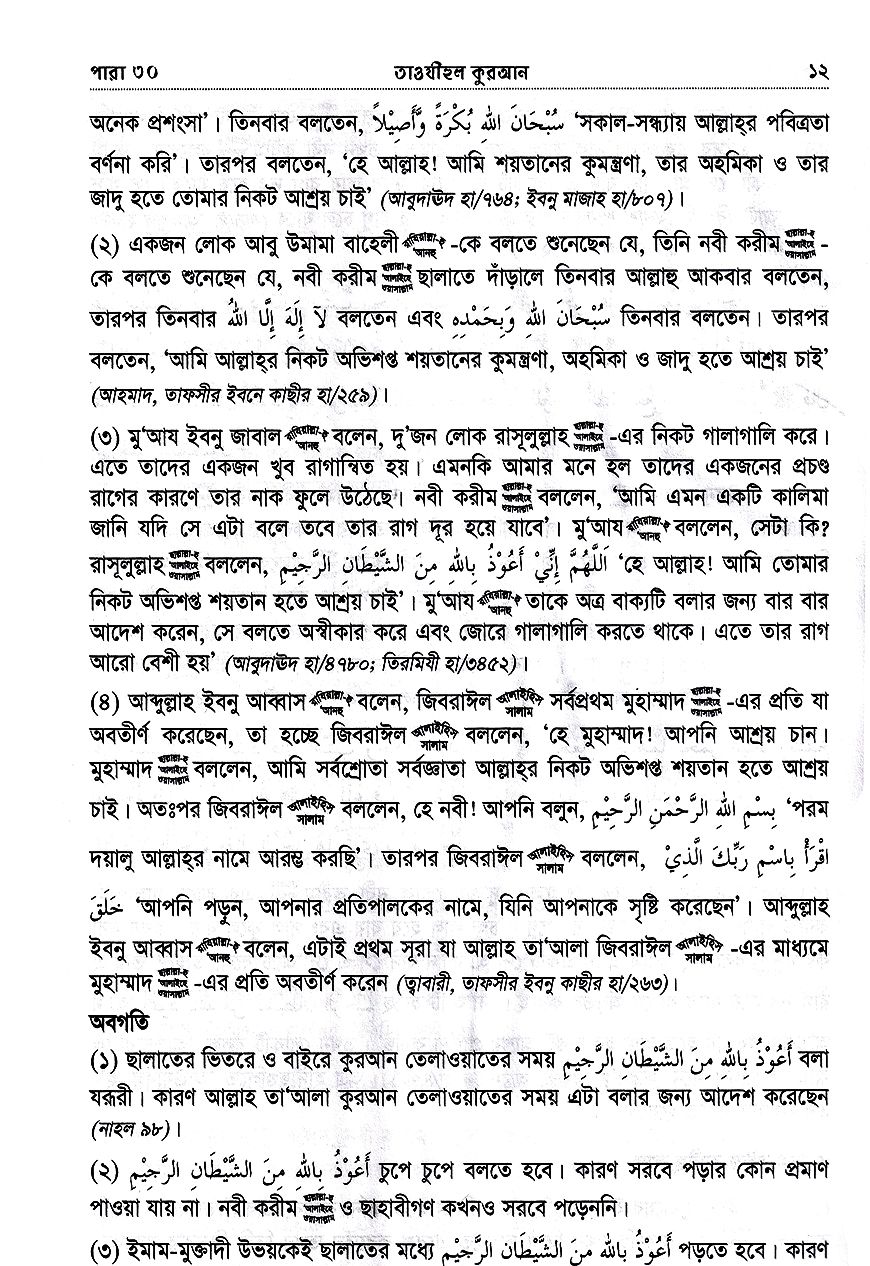 পারা ৩০ তাওযীহুল কুরআন ১২
অনেক প্রশংসা’। তিনবার বলতেন, سُبْحَانَ اللهِ بُكْرَةً وَّأَصِيْلاً ‘সকাল-সন্ধ্যায় আল্লাহ্‌র পবিত্রতা
বর্ণনা করি’। তারপর বলতেন, ‘হে আল্লাহ! আমি শয়তানের কুমন্ত্রণা, তার অহমিকা ও তার
জাদু হতে তোমার নিকট আশ্রয় চাই’ (আবুদাঊদ হা/৭৬৪; ইবনু মাজাহ হা/৮০৭)।
(২) একজন লোক আবু উমামা বাহেলী রাযিয়াল্লা-হু আনহু -কে বলতে শুনেছেন যে, তিনি নবী করীম ছাল্লাল্লা-হু আলাইহে ওয়াসাল্লাম -
কে বলতে শুনেছেন যে, নবী করীম ছাল্লাল্লা-হু আলাইহে ওয়াসাল্লাম ছালাতে দাঁড়ালে তিনবার আল্লাহু আকবার বলতেন,
তারপর তিনবার لآ إِلَهَ إِلَّا اللهُ বলতেন এবং سُبْحَانَ اللهِ وَبِحَمْدِهِ তিনবার বলতেন। তারপর
বলতেন, ‘আমি আল্লাহ্‌র নিকট অভিশপ্ত শয়তানের কুমন্ত্রণা, অহমিকা ও জাদু হতে আশ্রয় চাই’
(আহমাদ, তাফসীর ইবনে কাছীর হা/২৫৯)।
(৩) মু‘আয ইবনু জাবাল রাযিয়াল্লা-হু আনহু বলেন, দু’জন লোক রাসূলুল্লাহ ছাল্লাল্লা-হু আলাইহে ওয়াসাল্লাম -এর নিকট গালাগালি করে।
এতে তাদের একজন খুব রাগান্বিত হয়। এমনকি আমার মনে হল তাদের একজনের প্রচণ্ড
রাগের কারণে তার নাক ফুলে উঠেছে। নবী করীম ছাল্লাল্লা-হু আলাইহে ওয়াসাল্লাম বললেন, ‘আমি এমন একটি কালিমা
জানি যদি সে এটা বলে তবে তার রাগ দূর হয়ে যাবে’। মু‘আয রাযিয়াল্লা-হু আনহু বললেন, সেটা কি?
রাসূলুল্লাহ ছাল্লাল্লা-হু আলাইহে ওয়াসাল্লাম বললেন, اَللَّهُمَّ إِنِّيْ أَعُوْذُ بِاللهِ مِنَ الشَّيْطَانِ الرَّجِيْمِ ‘হে আল্লাহ! আমি তোমার
নিকট অভিশপ্ত শয়তান হতে আশ্রয় চাই’। মু‘আয রাযিয়াল্লা-হু আনহু তাকে অত্র বাক্যটি বলার জন্য বার বার
আদেশ করেন, সে বলতে অস্বীকার করে এবং জোরে গালাগালি করতে থাকে। এতে তার রাগ
আরো বেশী হয়’ (আবুদাঊদ হা/৪৭৮০; তিরমিযী হা/৩৪৫২)।
(৪) আব্দুল্লাহ ইবনু আব্বাস রাযিয়াল্লা-হু আনহু বলেন, জিবরাঈল আলাইহিস সালাম সর্বপ্রথম মুহাম্মাদ ছাল্লাল্লা-হু আলাইহে ওয়াসাল্লাম -এর প্রতি যা
অবতীর্ণ করেছেন, তা হচ্ছে জিবরাঈল আলাইহিস সালাম বললেন, ‘হে মুহাম্মাদ! আপনি আশ্রয় চান।
মুহাম্মাদ ছাল্লাল্লা-হু আলাইহে ওয়াসাল্লাম বললেন, আমি সর্বশ্রোতা সর্বজ্ঞাতা আল্লাহ্‌র নিকট অভিশপ্ত শয়তান হতে আশ্রয়
চাই। অতঃপর জিবরাঈল আলাইহিস সালাম বললেন, হে নবী! আপনি বলুন, بِسْمِ اللهِ الرَّحْمَنِ الرَّحِيْمِ ‘পরম
দয়ালু আল্লাহ্‌র নামে আরম্ভ করছি’। তারপর জিবরাঈল আলাইহিস সালাম বললেন, اقْرَأْ بِاسْمِ رَبِّكَ الَّذِيْ
خَلَقَ ‘আপনি পড়ুন, আপনার প্রতিপালকের নামে, যিনি আপনাকে সৃষ্টি করেছেন’। আব্দুল্লাহ
ইবনু আব্বাস রাযিয়াল্লা-হু আনহু বলেন, এটাই প্রথম সূরা যা আল্লাহ তা‘আলা জিবরাঈল আলাইহিস সালাম -এর মাধ্যমে
মুহাম্মাদ ছাল্লাল্লা-হু আলাইহে ওয়াসাল্লাম -এর প্রতি অবতীর্ণ করেন (ত্বাবারী, তাফসীর ইবনু কাছীর হা/২৬৩)।
অবগতি
(১) ছালাতের ভিতরে ও বাইরে কুরআন তেলাওয়াতের সময় أَعُوْذُ بِاللهِ مِنَ الشَّيْطَانِ الرَّجِيْمِ বলা
যরূরী। কারণ আল্লাহ তা‘আলা কুরআন তেলাওয়াতের সময় এটা বলার জন্য আদেশ করেছেন
(নাহল ৯৮)।
(২) أَعُوْذُ بِاللهِ مِنَ الشَّيْطَانِ الرَّجِيْمِ চুপে চুপে বলতে হবে। কারণ সরবে পড়ার কোন প্রমাণ
পাওয়া যায় না। নবী করীম ছাল্লাল্লা-হু আলাইহে ওয়াসাল্লাম ও ছাহাবীগণ কখনও সরবে পড়েননি।
(৩) ইমাম-মুক্তাদী উভয়কেই ছালাতের মধ্যে أَعُوْذُ بِاللهِ مِنَ الشَّيْطَانِ الرَّجِيْمِ পড়তে হবে। কারণ